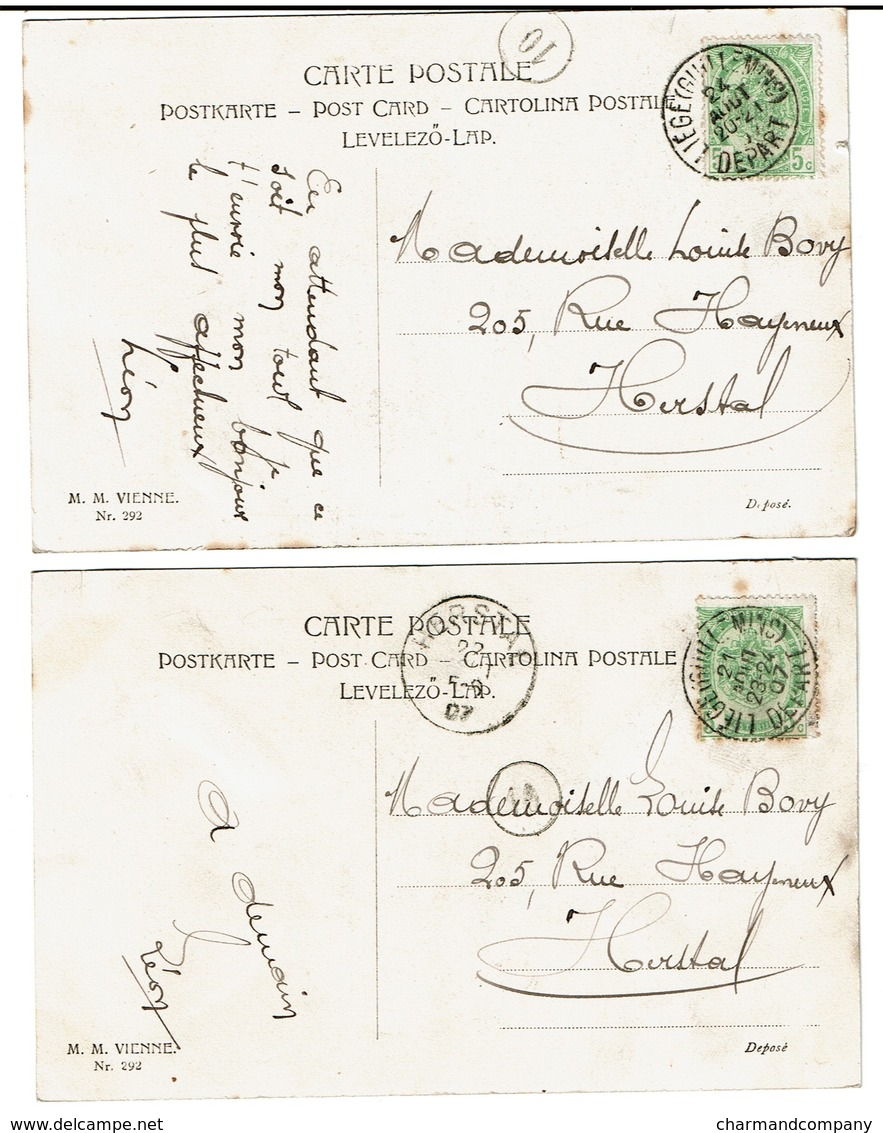 CARTE POSTALE
POSTKARTE – POST CARD – CARTOLINA POSTALE
LEVELEZŐ-LAP.
LIEGE (GUILLEMINS)
24
AOUT
20-21
DEPART
5 5c
En attendant que ce
soit mon tour je
t'envoie mon bonjour
le plus affectueux
Léon
Mademoiselle Louise Bovy
205, Rue Hayeneux
Herstal
M. M. VIENNE.
Nr. 292
Déposé.
CARTE POSTALE
POSTKARTE – POST CARD – CARTOLINA POSTALE
LEVELEZŐ-LAP.
HERSTAL
07
LIEGE (GUILLEMINS)
07
DEPART
A demain
Léon
Mademoiselle Louise Bovy
205, Rue Hayeneux
Herstal
M. M. VIENNE.
Nr. 292
Deposé
delcampe.net
charmandcompany